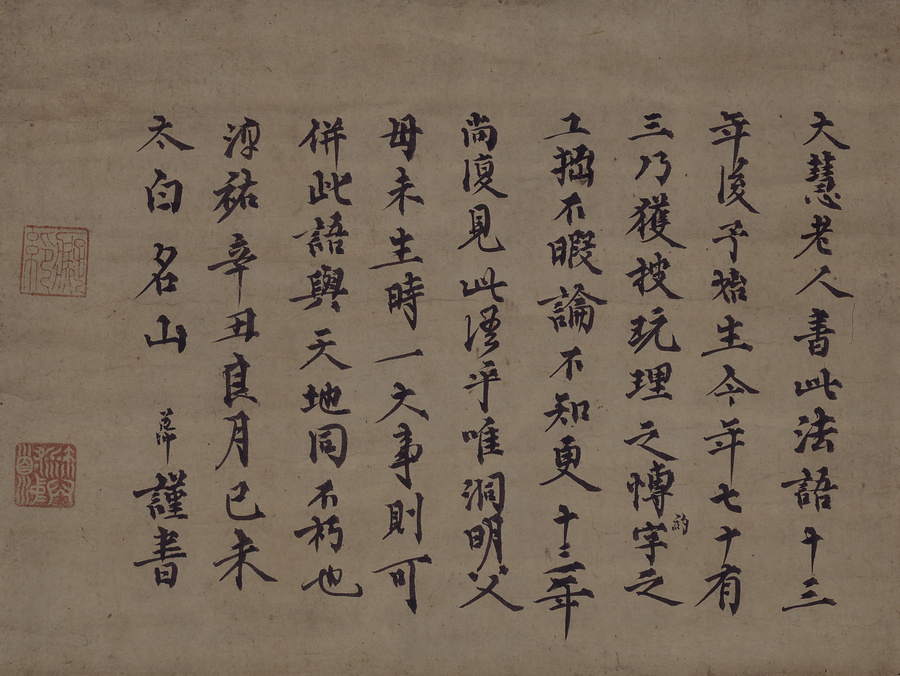 大慧老人書此法語十三
年後予始生今年七十有
三乃獲披玩理之慱的字之
工拙不暇論不知更十三年
尚復見此語乎唯洞明父
母未生時一大事則可
併此語與天地同不朽也
淳祐辛丑良月己未
太白名山道冲謹書